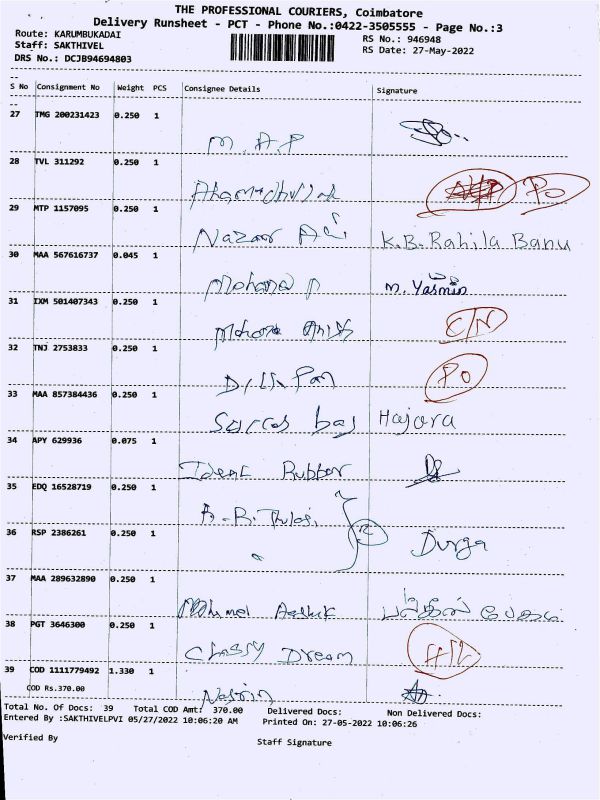 THE PROFESSIONAL COURIERS, Coimbatore
Delivery Runsheet - PCT - Phone No.:0422-3505555 - Page No.:3
Route: KARUMBUKADAI
RS No.: 946948
Staff: SAKTHIVEL
RS Date: 27-May-2022
DRS No.: DCJB94694803
S No Consignment No Weight PCS Consignee Details Signature
27 TMG 200231423 0.250 1
M. A. P
28 TVL 311292 0.250 1
PO
29 MTP 1157095 0.250 1
Nazar Ali K.B. Rahila Banu
30 MAA 567616737 0.045 1
Mohana M. Yasmin
31 IXM 501407343 0.250 1
Mohana C/N
32 TNJ 2753833 0.250 1
PO
33 MAA 857384436 0.250 1
bag Hajara
34 APY 629936 0.075 1
Ideal Rubber
35 EDQ 16528719 0.250 1
Thulasi
36 RSP 2386261 0.250 1
Durga
37 MAA 289632890 0.250 1
38 PGT 3646300 0.250 1
Classy Dream
39 COD 1111779492 1.330 1
COD Rs.370.00
Nasrin
Total No. Of Docs: 39 Total COD Amt: 370.00 Delivered Docs: Non Delivered Docs:
Entered By :SAKTHIVELPVI 05/27/2022 10:06:20 AM Printed On: 27-05-2022 10:06:26
Verified By
Staff Signature